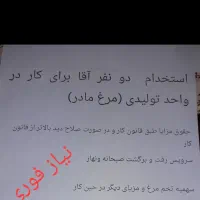 استخدام دو نفر آقا برای کار در
واحد تولیدی (مرغ مادر)
حقوق مزایا طبق قانون کار و در صورت صلاح دید بالاتر از قانون
کار
سرویس رفت و برگشت صبحانه ونهار
سهمیه تخم مرغ و مزیای دیگر در حین کار
نیاز فوری